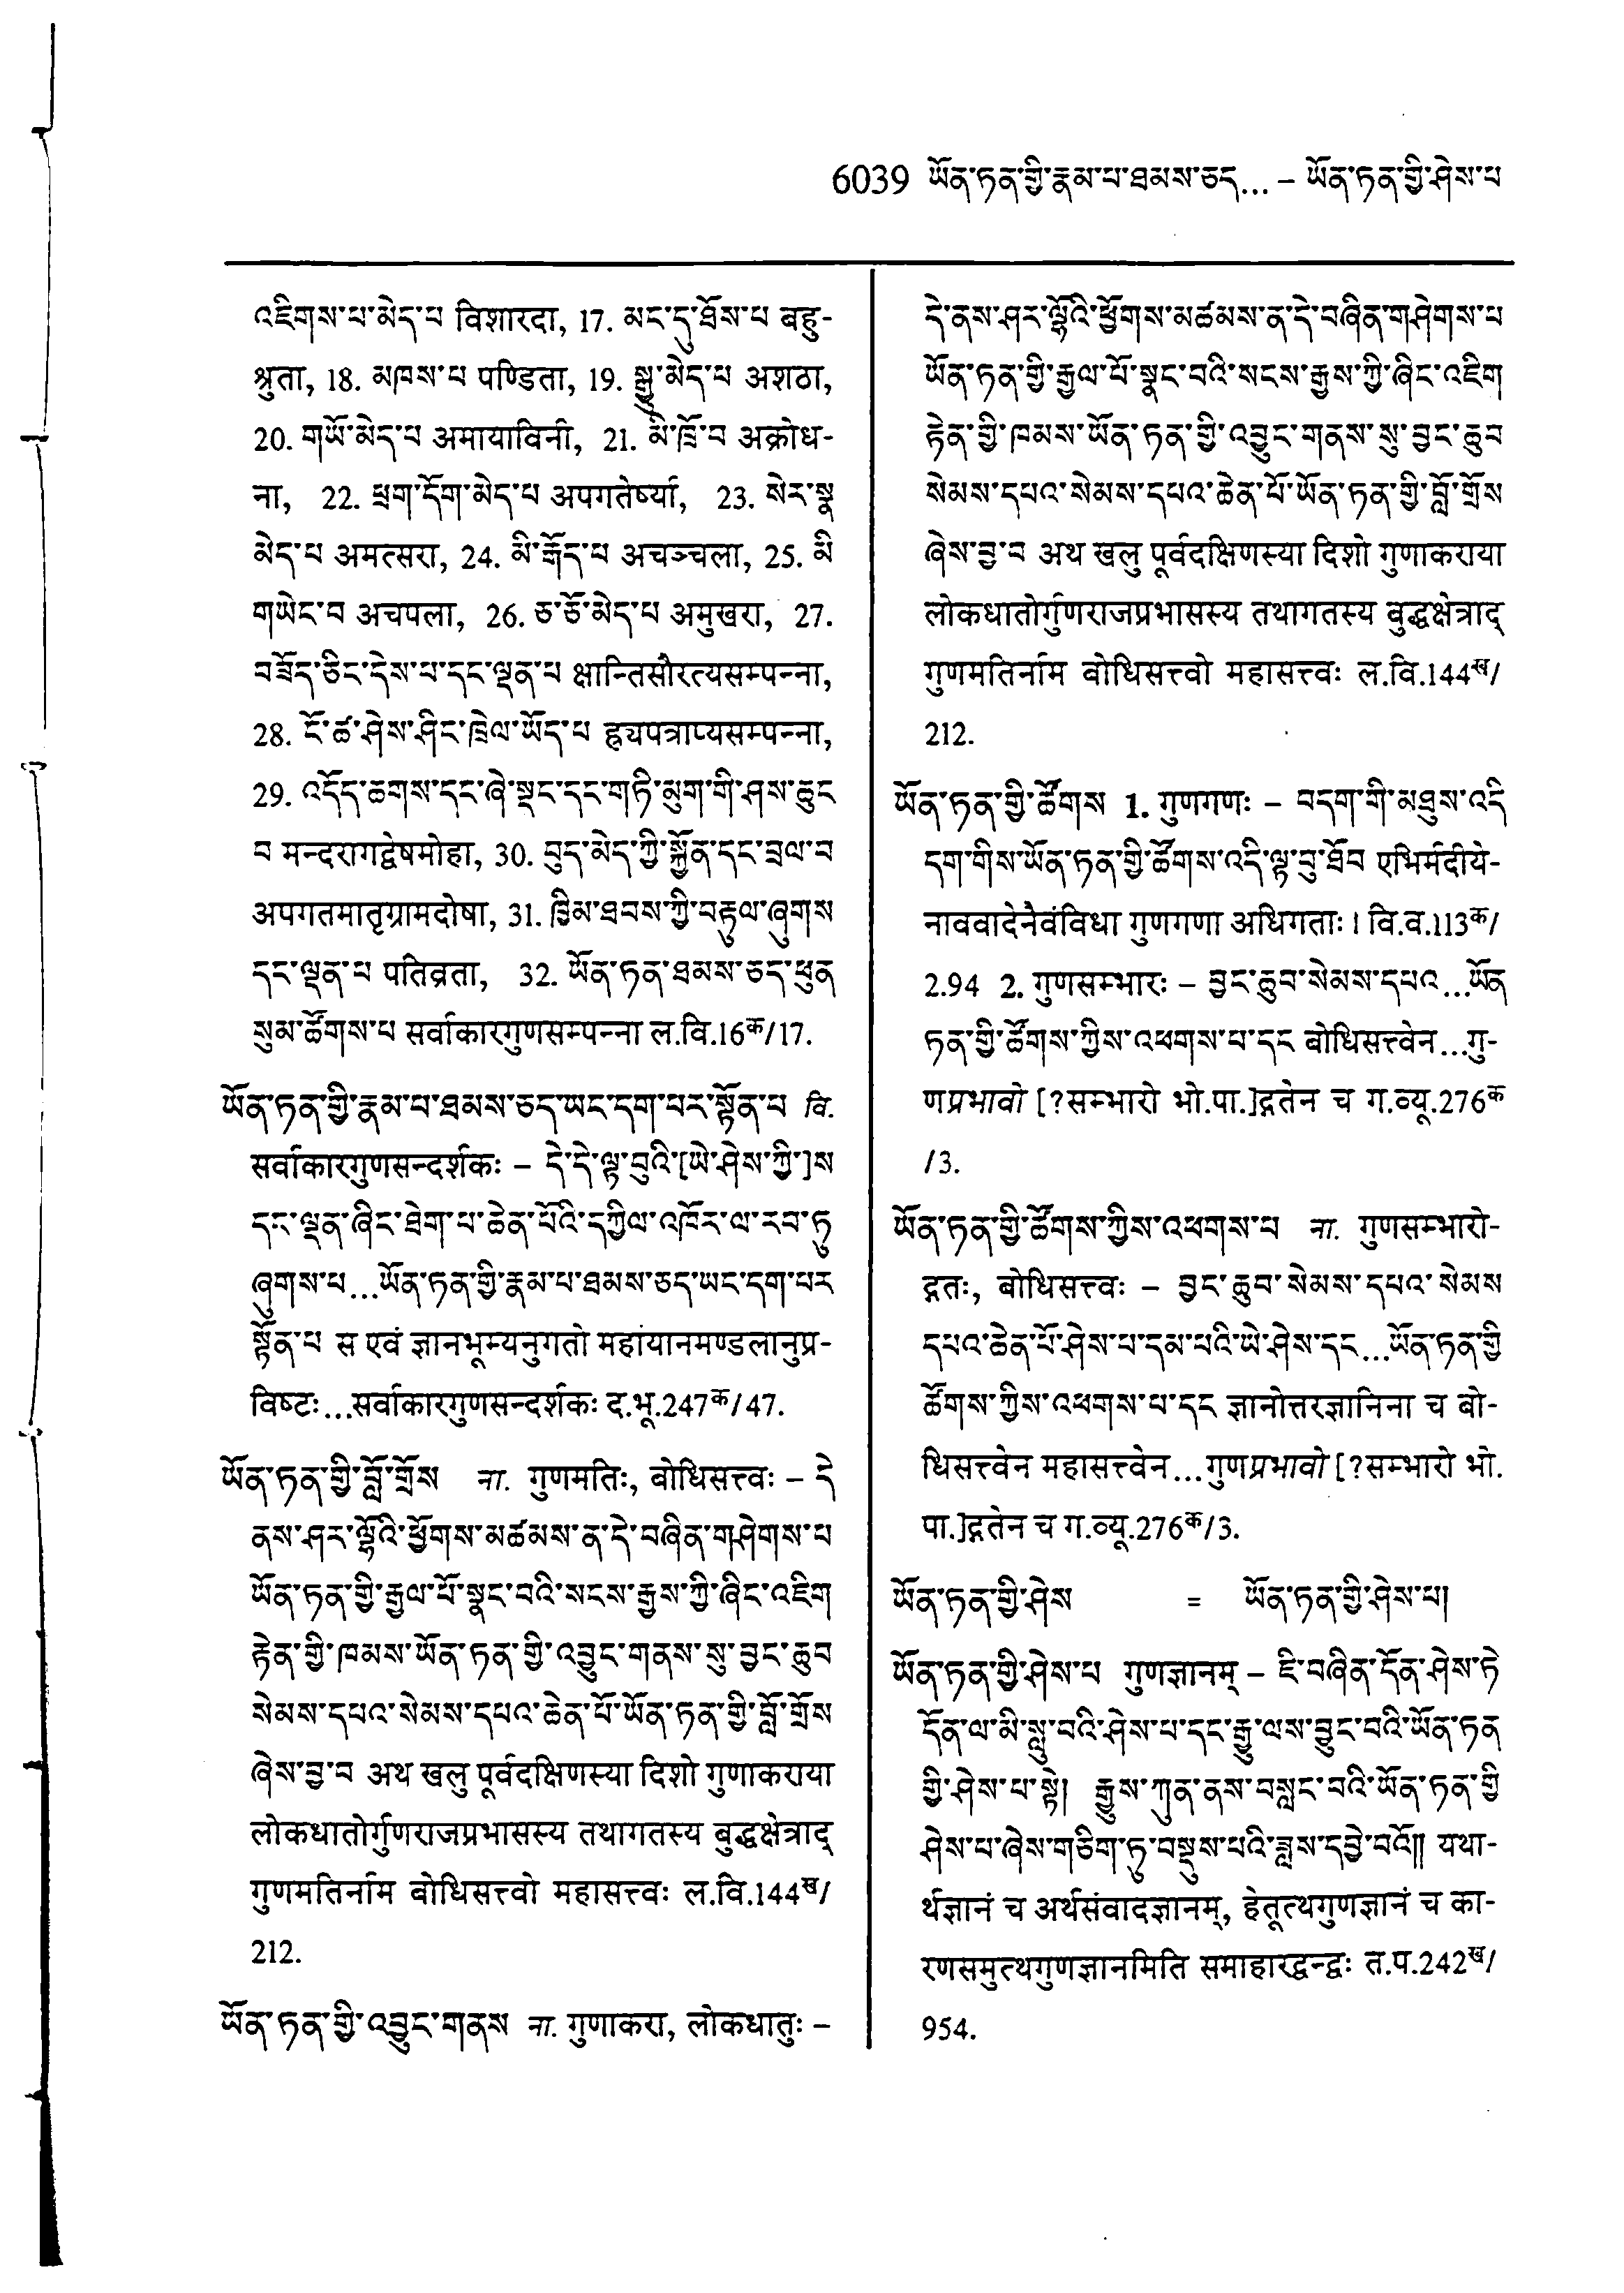 6039 ཡོན་ཏན་གྱི་རྣམ་པ་ཐམས་ཅད... – ཡོན་ཏན་གྱི་ཤེས་པ
འཇིགས་པ་མེད་པ विशारदा, 17. མང་དུ་ཐོས་པ बहु-
श्रुता, 18. མཁས་པ पण्डिता, 19. སྒྱུ་མེད་པ अशठा,
20. གཡོ་མེད་པ अमायाविनी, 21. མི་ཁྲོ་བ अक्रोध-
ना, 22. ཕྲག་དོག་མེད་པ अपगतेर्ष्या, 23. སེར་སྣ
མེད་པ अमत्सरा, 24. མི་རྒོད་པ अचञ्चला, 25. མི
གཡེང་བ अचपला, 26. ཅ་ཅོ་མེད་པ अमुखरा, 27.
བཟོད་ཅིང་དེས་པ་དང་ལྡན་པ क्षान्तिसौरत्यसम्पन्ना,
28. ངོ་ཚ་ཤེས་ཤིང་ཁྲེལ་ཡོད་པ ह्र्यपत्राप्यसम्पन्ना,
29. འདོད་ཆགས་དང་ཞེ་སྡང་དང་གཏི་མུག་གི་ཤས་ཆུང
བ मन्दरागद्वेषमोहा, 30. བུད་མེད་ཀྱི་སྐྱོན་དང་བྲལ་བ
अपगतमातृग्रामदोषा, 31. ཁྱིམ་ཐབས་ཀྱི་བརྟུལ་ཞུགས
དང་ལྡན་པ पतिव्रता, 32. ཡོན་ཏན་ཐམས་ཅད་ཕུན
སུམ་ཚོགས་པ सर्वाकारगुणसम्पन्ना ल.वि.16क/17.
ཡོན་ཏན་གྱི་རྣམ་པ་ཐམས་ཅད་ཡང་དག་པར་སྟོན་པ वि.
सर्वाकारगुणसन्दर्शकः – དེ་དེ་ལྟ་བུའི་[ཡེ་ཤེས་ཀྱི་]ས
དང་ལྡན་ཞིང་ཐེག་པ་ཆེན་པོའི་དཀྱིལ་འཁོར་ལ་རབ་ཏུ
ཞུགས་པ...ཡོན་ཏན་གྱི་རྣམ་པ་ཐམས་ཅད་ཡང་དག་པར
སྟོན་པ स एवं ज्ञानभूम्यनुगतो महायानमण्डलानुप्र-
विष्टः...सर्वाकारगुणसन्दर्शकः द.भू.247क/47.
ཡོན་ཏན་གྱི་བློ་གྲོས ना. गुणमतिः, बोधिसत्त्वः – དེ
ནས་ཤར་ལྷོའི་ཕྱོགས་མཚམས་ན་དེ་བཞིན་གཤེགས་པ
ཡོན་ཏན་གྱི་རྒྱལ་པོ་སྣང་བའི་སངས་རྒྱས་ཀྱི་ཞིང་འཇིག
རྟེན་གྱི་ཁམས་ཡོན་ཏན་གྱི་འབྱུང་གནས་སུ་བྱང་ཆུབ
སེམས་དཔའ་སེམས་དཔའ་ཆེན་པོ་ཡོན་ཏན་གྱི་བློ་གྲོས
ཞེས་བྱ་བ अथ खलु पूर्वदक्षिणस्या दिशो गुणाकराया
लोकधातोर्गुणराजप्रभासस्य तथागतस्य बुद्धक्षेत्राद्
गुणमतिर्नाम बोधिसत्त्वो महासत्त्वः ल.वि.144ख/
212.
ཡོན་ཏན་གྱི་འབྱུང་གནས ना. गुणाकरा, लोकधातुः –
དེ་ནས་ཤར་ལྷོའི་ཕྱོགས་མཚམས་ན་དེ་བཞིན་གཤེགས་པ
ཡོན་ཏན་གྱི་རྒྱལ་པོ་སྣང་བའི་སངས་རྒྱས་ཀྱི་ཞིང་འཇིག
རྟེན་གྱི་ཁམས་ཡོན་ཏན་གྱི་འབྱུང་གནས་སུ་བྱང་ཆུབ
སེམས་དཔའ་སེམས་དཔའ་ཆེན་པོ་ཡོན་ཏན་གྱི་བློ་གྲོས
ཞེས་བྱ་བ अथ खलु पूर्वदक्षिणस्या दिशो गुणाकराया
लोकधातोर्गुणराजप्रभासस्य तथागतस्य बुद्धक्षेत्राद्
गुणमतिर्नाम बोधिसत्त्वो महासत्त्वः ल.वि.144ख/
212.
ཡོན་ཏན་གྱི་ཚོགས 1. गुणगणः – བདག་གི་མཐུས་འདི
དག་གིས་ཡོན་ཏན་གྱི་ཚོགས་འདི་ལྟ་བུ་ཐོབ एभिर्मदीये-
नाववादेनैवंविधा गुणगणा अधिगताः। वि.व.113क/
2.94 2. गुणसम्भारः – བྱང་ཆུབ་སེམས་དཔའ...ཡོན
ཏན་གྱི་ཚོགས་ཀྱིས་འཕགས་པ་དང बोधिसत्त्वेन...गु-
णप्रभावो [?सम्भारो भो.पा.]द्गतेन च ग.व्यू.276क
/3.
ཡོན་ཏན་གྱི་ཚོགས་ཀྱིས་འཕགས་པ ना. गुणसम्भारो-
द्गतः, बोधिसत्त्वः – བྱང་ཆུབ་སེམས་དཔའ་སེམས
དཔའ་ཆེན་པོ་ཤེས་པ་དམ་པའི་ཡེ་ཤེས་དང...ཡོན་ཏན་གྱི
ཚོགས་ཀྱིས་འཕགས་པ་དང ज्ञानोत्तरज्ञानिना च बो-
धिसत्त्वेन महासत्त्वेन...गुणप्रभावो [?सम्भारो भो.
पा.]द्गतेन च ग.व्यू.276क/3.
ཡོན་ཏན་གྱི་ཤེས = ཡོན་ཏན་གྱི་ཤེས་པ།
ཡོན་ཏན་གྱི་ཤེས་པ गुणज्ञानम् – ཇི་བཞིན་དོན་ཤེས་ཏེ
དོན་ལ་མི་སླུ་བའི་ཤེས་པ་དང་རྒྱུ་ལས་བྱུང་བའི་ཡོན་ཏན
གྱི་ཤེས་པ་སྟེ། རྒྱུས་ཀུན་ནས་བསླང་བའི་ཡོན་ཏན་གྱི
ཤེས་པ་ཞེས་གཅིག་ཏུ་བསྡུས་པའི་ཟླས་དབྱེ་བའོ།། यथा-
र्थज्ञानं च अर्थसंवादज्ञानम्, हेतूत्थगुणज्ञानं च का-
रणसमुत्थगुणज्ञानमिति समाहारद्वन्द्वः त.प.242ख/
954.